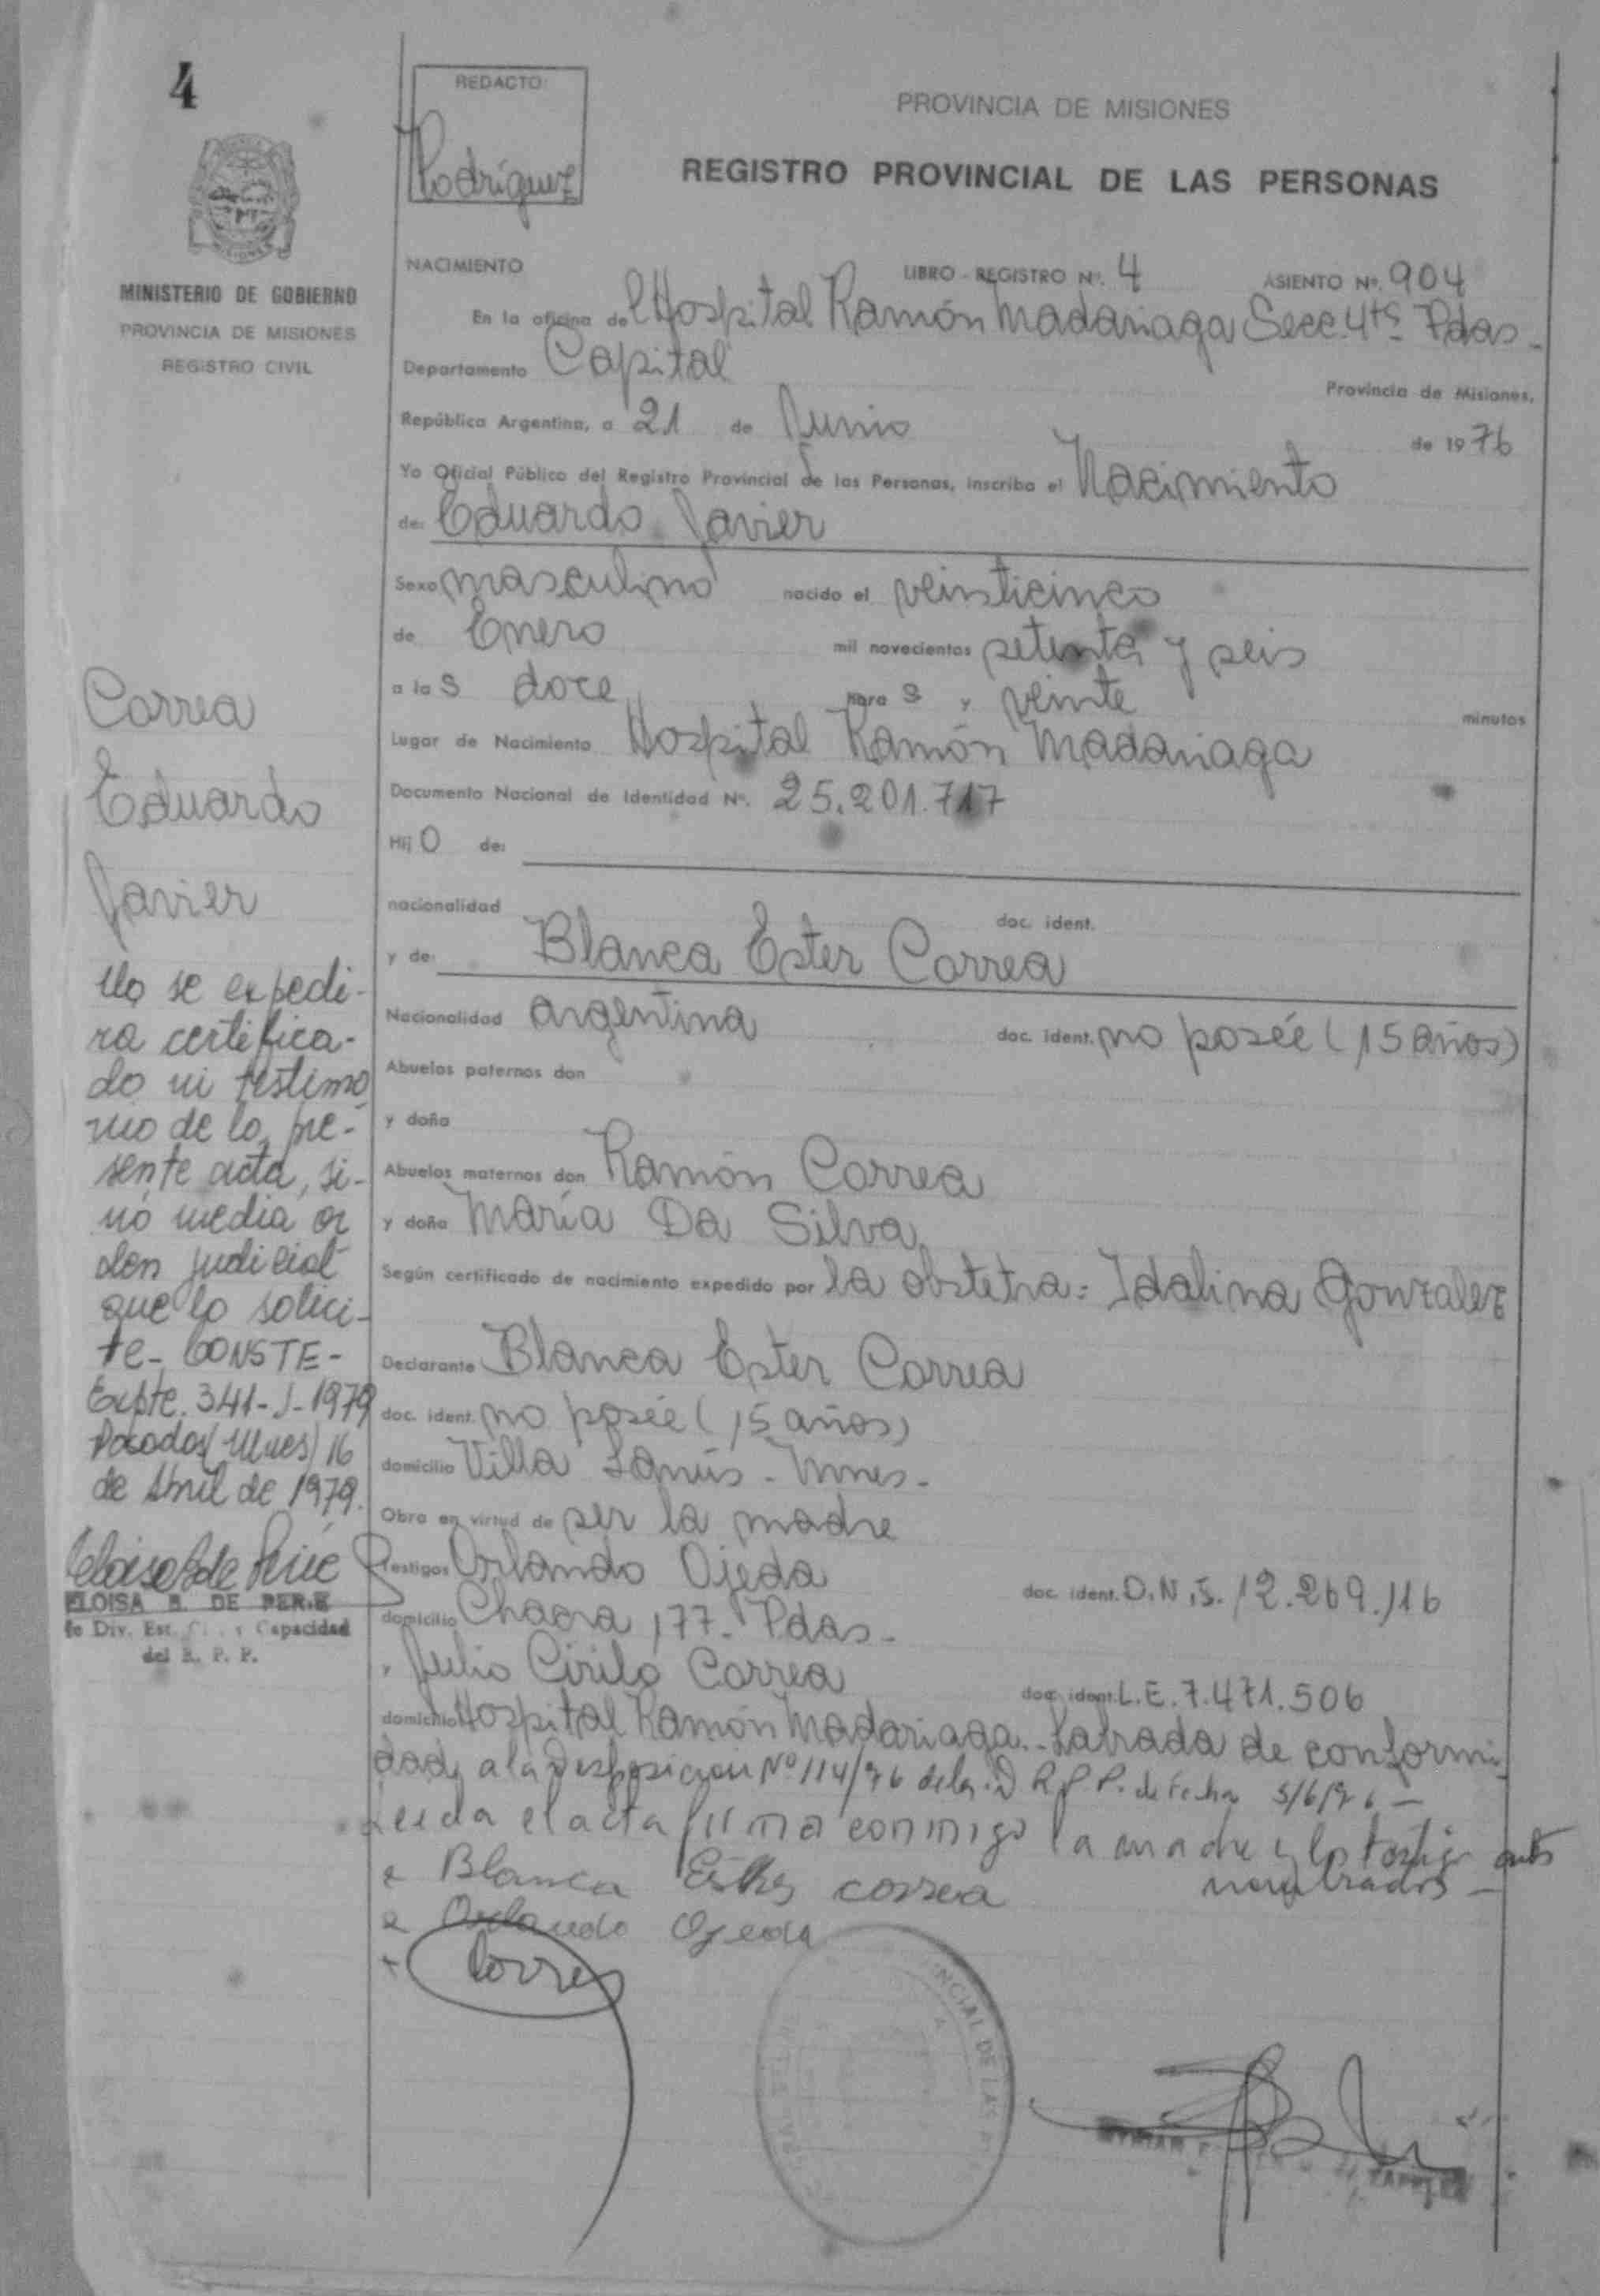 4
REDACTO:
Rodríguez
PROVINCIA DE MISIONES
REGISTRO PROVINCIAL DE LAS PERSONAS
MISIONES
MINISTERIO DE GOBIERNO
PROVINCIA DE MISIONES
REGISTRO CIVIL
NACIMIENTO LIBRO - REGISTRO Nº. 4 ASIENTO Nº. 904
En la oficina del Hospital Ramón Madariaga Secc. 4ta Pdas -
Departamento Capital Provincia de Misiones,
República Argentina, a 21 de Junio de 1976
Yo Oficial Público del Registro Provincial de las Personas, inscribo el Nacimiento
de: Eduardo Javier
Sexo masculino nacido el veinticinco
de Enero mil novecientos setenta y seis
a las doce horas y veinte minutos
Lugar de Nacimiento Hospital Ramón Madariaga
Documento Nacional de Identidad Nº. 25.201.717
Hijo de:
nacionalidad doc. ident.
y de: Blanca Ester Correa
Nacionalidad argentina doc. ident. no posée (15 años)
Abuelos paternos don
y doña
Abuelos maternos don Ramón Correa
y doña María Da Silva
Según certificado de nacimiento expedido por la obstetra: Idalina Gonzalez
Declarante Blanca Ester Correa
doc. ident. no posée (15 años)
domicilio Villa Lanús - Mnes -
Obra en virtud de ser la madre
Testigos Orlando Ojeda doc. ident. D.N.I. 12.269.116
domicilio Chacra 177 - Pdas -
y Julio Cirilo Correa doc. ident. L.E. 7.471.506
domicilio Hospital Ramón Madariaga - Labrada de conformi-
dad a la Disposicion Nº 114/76 de la D.R.P.P. de fecha 5/6/76 -
Leida el acta firma conmigo la madre y los testigos antes
nombrados -
Blanca Ester correa
Orlando Ojeda
Correa
Correa
Eduardo
Javier
No se expedi-
ra certifica-
do ni testimo
nio de la pre-
sente acta, si-
nó media or
den judicial
que lo solici-
te - CONSTE -
Expte. 341-J-1979
Posadas (Mnes) 16
de Abril de 1979.
ELOISA B. DE PERIE
fe Div. Est. Capacidad
del R. P. P.
NCIAL DE LAS P